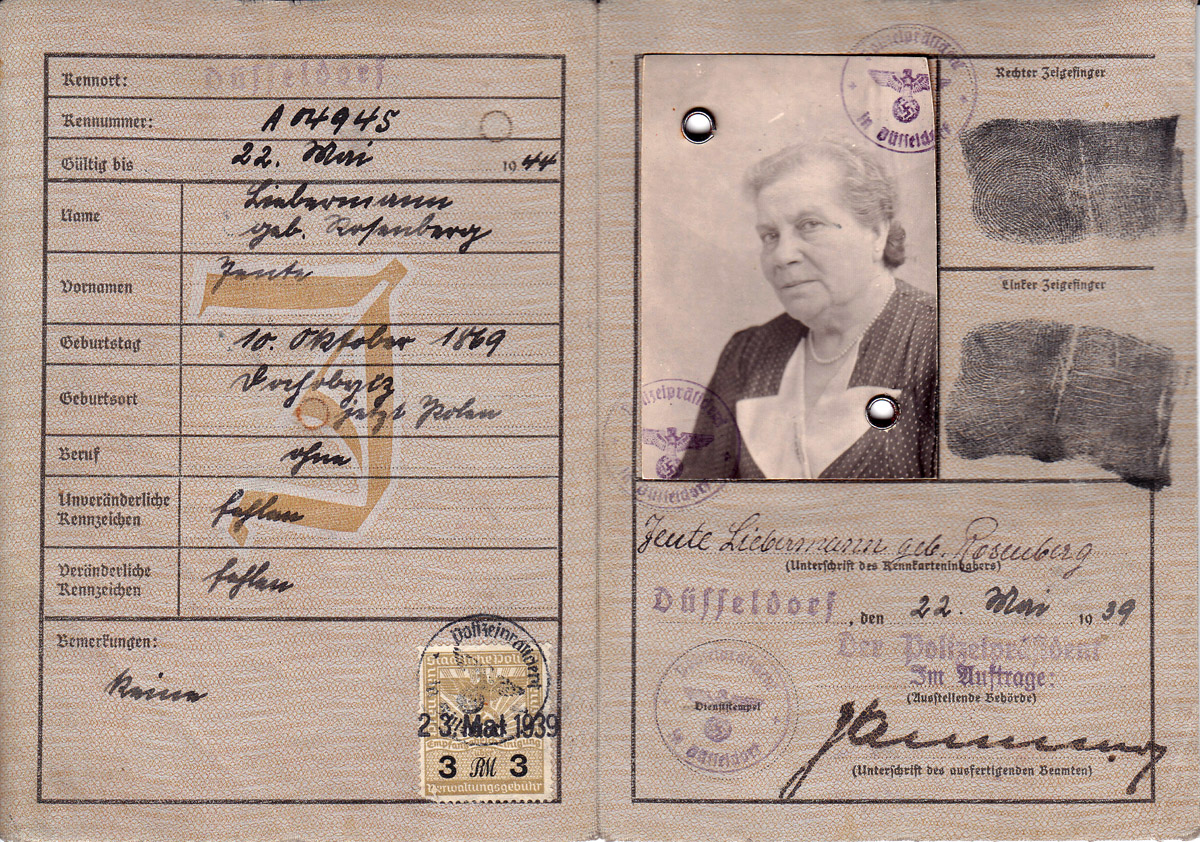 Kennort: Düsseldorf
Kennummer: A 04945
Gültig bis 22. Mai 1944
Name Liebermann
geb. Rosenberg
Vornamen Jente
Geburtstag 10. Oktober 1869
Geburtsort
jetzt Polen
Beruf ohne
Unveränderliche
Kennzeichen fehlen
Veränderliche
Kennzeichen fehlen
Bemerkungen:
Keine
J
23. Mai 1939
3 RM 3
Verwaltungsgebühr
Polizeipräsident
in Düsseldorf
Rechter Zeigefinger
Linker Zeigefinger
Polizeipräsident
in Düsseldorf
Jente Liebermann geb. Rosenberg
(Unterschrift des Kennkarteninhabers)
Düsseldorf, den 22. Mai 1939
Der Polizeipräsident
Im Auftrage:
(Ausstellende Behörde)
Dienststempel
in Düsseldorf
(Unterschrift des ausfertigenden Beamten)